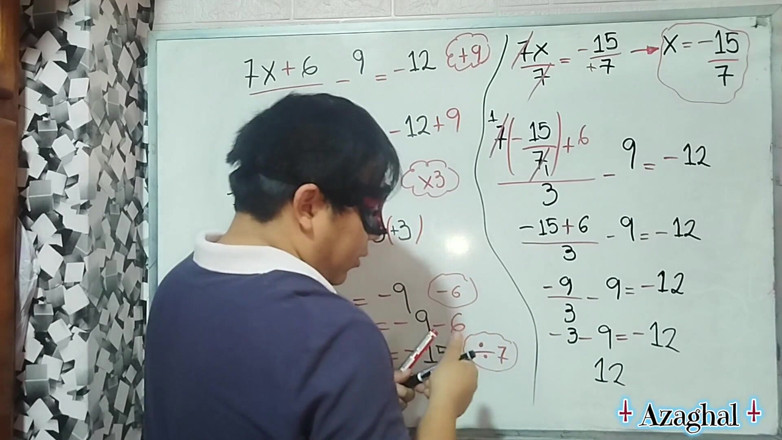 7x + 6 - 9 = -12 +9
-12 + 9
x3
(+3)
= -9 -6
= -9 - 6
= -15 ÷7
7x/7 = -15/+7 → x = -15/7
1 7(-15/7 1) + 6 / 3 - 9 = -12
-15 + 6 / 3 - 9 = -12
-9/3 - 9 = -12
-3 - 9 = -12
12
Azaghal